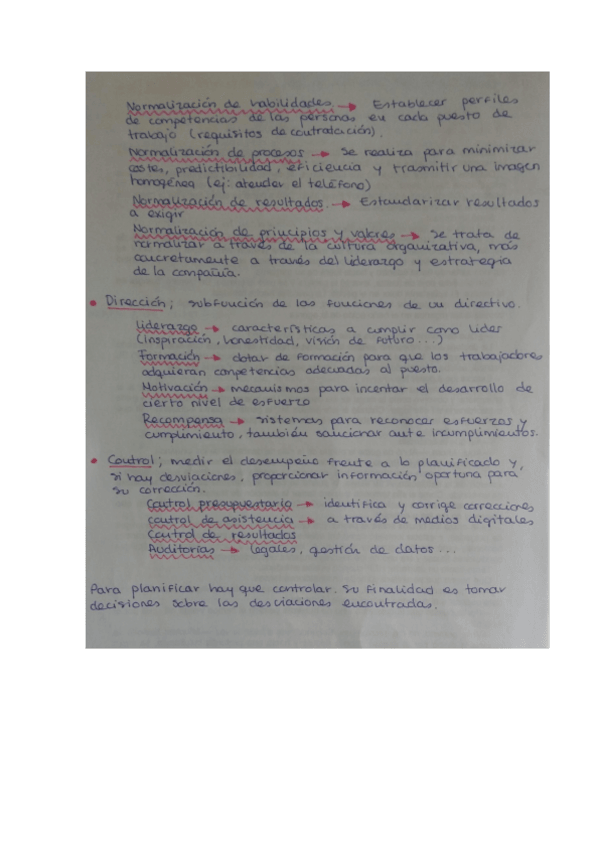 Normalización de habilidades → Establecer perfiles
de competencias de las personas en cada puesto de
trabajo (requisitos de contratación).
Normalización de procesos → Se realiza para minimizar
costes, predictibilidad, eficiencia y trasmitir una imagen
homogénea (ej: atender el teléfono)
Normalización de resultados. → Estandarizar resultados
a exigir
Normalización de principios y valores → Se trata de
normalizar a través de la cultura organizativa, más
concretamente a través del liderazgo y estrategia
de la compañía.
• Dirección; subfunción de las funciones de un directivo.
Liderazgo → características a cumplir como líder
(Inspiración, honestidad, visión de futuro...)
Formación → dotar de formación para que los trabajadores
adquieran competencias adecuadas al puesto.
Motivación → mecanismos para incentar el desarrollo de
cierto nivel de esfuerzo
Recompensa → sistemas para reconocer esfuerzos y
cumplimiento, también sancionar ante incumplimientos.
• Control; medir el desempeño frente a lo planificado y,
si hay desviaciones, proporcionar información oportuna para
su corrección.
Control presupuestario → identifica y corrige correcciones
control de asistencia → a través de medios digitales
Control de resultados
Auditorías → legales, gestión de datos...
Para planificar hay que controlar. Su finalidad es tomar
decisiones sobre las desviaciones encontradas.